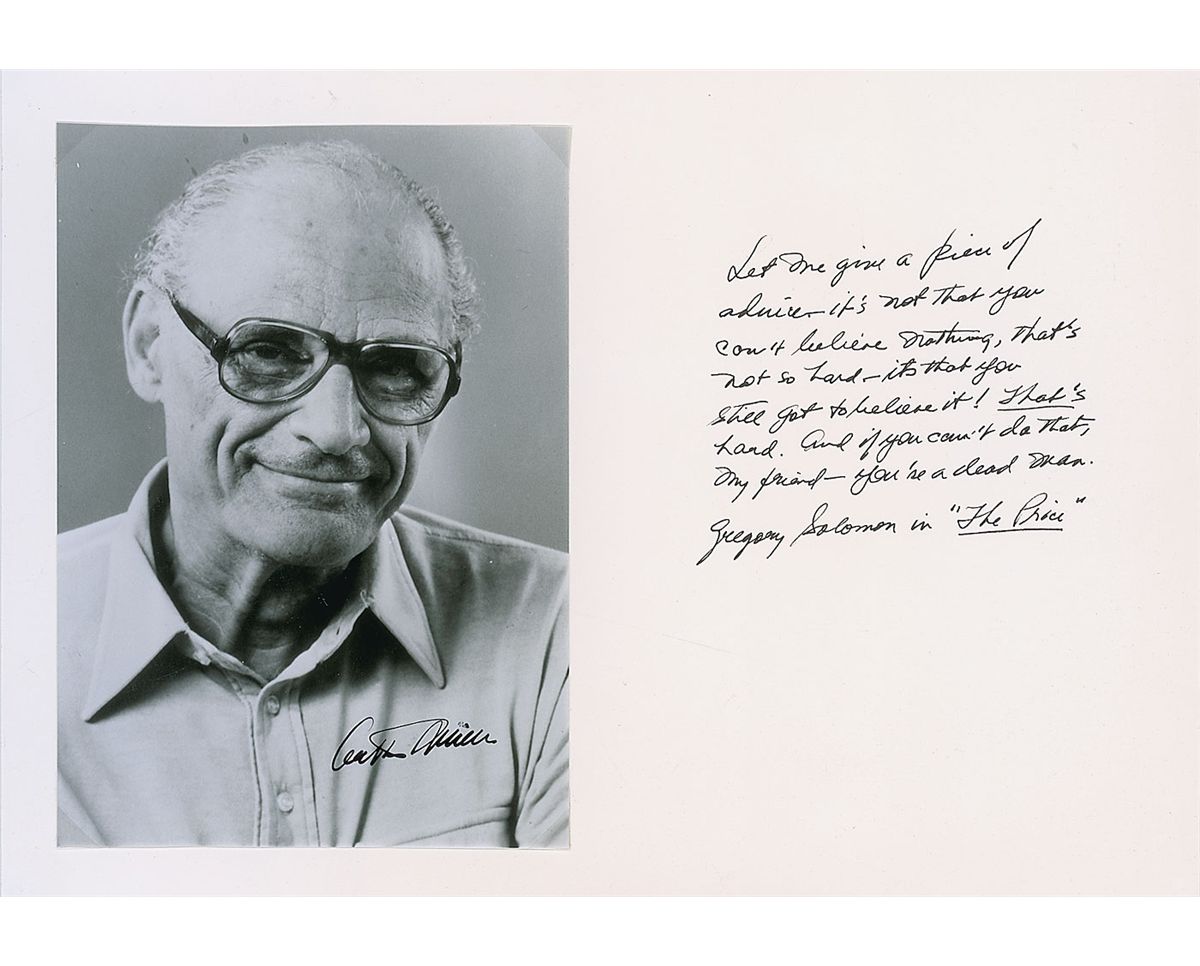 Let me give a piece of
advice – it's not that you
can't believe nothing, that's
not so hard – it's that you
still got to believe it! That's
hard. And if you can't do that,
my friend – you're a dead man.
Gregory Solomon in "The Price"
Arthur Miller